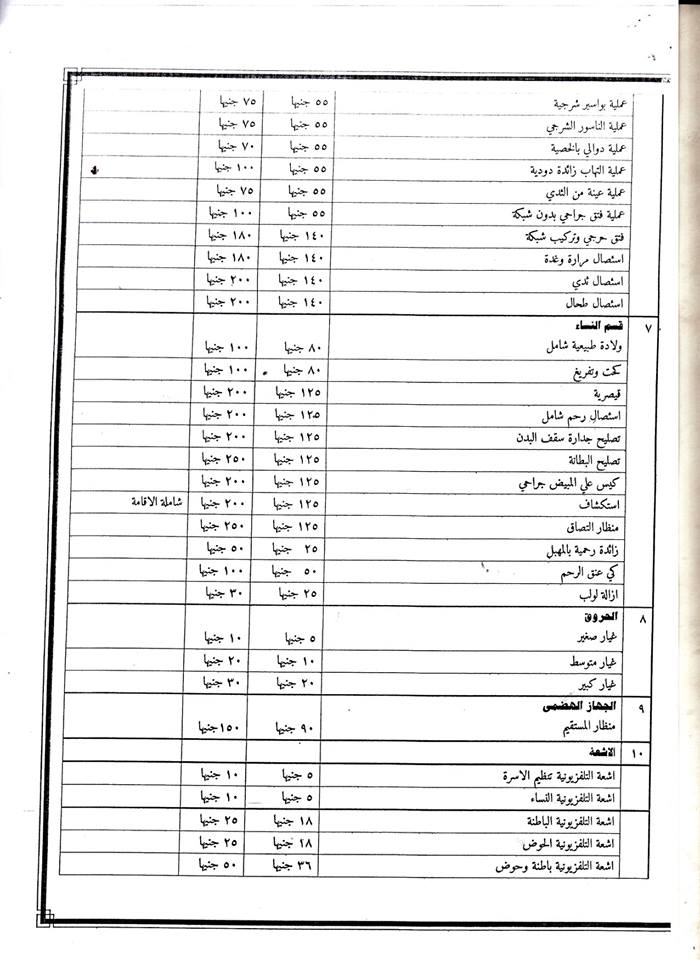 عملية بواسير شرجية ٥٥ جنيها ٧٥ جنيها
عملية الناسور الشرجي ٥٥ جنيها ٧٥ جنيها
عملية دوالي بالخصية ٥٥ جنيها ٧٠ جنيها
عملية التهاب زائدة دودية ٥٥ جنيها ١٠٠ جنيها
عملية عينة من الثدي ٥٥ جنيها ٧٥ جنيها
عملية فتق جراحي بدون شبكة ٥٥ جنيها ١٠٠ جنيها
فتق حرجي وتركيب شبكة ١٤٠ جنيها ١٨٠ جنيها
استئصال مرارة وغدة ١٤٠ جنيها ١٨٠ جنيها
استئصال ثدي ١٤٠ جنيها ٢٠٠ جنيها
استئصال طحال ١٤٠ جنيها ٢٠٠ جنيها
٧ قسم النساء
ولادة طبيعية شامل ٨٠ جنيها ١٠٠ جنيها
كحت وتفريغ ٨٠ جنيها ١٠٠ جنيها
قيصرية ١٢٥ جنيها ٢٠٠ جنيها
استئصال رحم شامل ١٢٥ جنيها ٢٠٠ جنيها
تصليح جدارة سقف البدن ١٢٥ جنيها ٢٠٠ جنيها
تصليح البطانة ١٢٥ جنيها ٢٥٠ جنيها
كيس علي المبيض جراحي ١٢٥ جنيها ٢٠٠ جنيها
استكشاف ١٢٥ جنيها ٢٠٠ جنيها شاملة الاقامة
منظار التصاق ١٢٥ جنيها ٢٥٠ جنيها
زائدة رحمية بالمهبل ٢٥ جنيها ٥٠ جنيها
كي عنق الرحم ٥٠ جنيها ١٠٠ جنيها
ازالة لولب ٢٥ جنيها ٣٠ جنيها
٨ الحروق
غيار صغير ٥ جنيها ١٠ جنيها
غيار متوسط ١٠ جنيها ٢٠ جنيها
غيار كبير ٢٠ جنيها ٣٠ جنيها
٩ الجهاز الهضمى
منظار المستقيم ٩٠ جنيها ١٥٠ جنيها
١٠ الاشعة
اشعة التلفزيونية تنظيم الاسرة ٥ جنيها ١٠ جنيها
اشعة التلفزيونية النساء ٥ جنيها ١٠ جنيها
اشعة التلفزيونية الباطنة ١٨ جنيها ٢٥ جنيها
اشعة التلفزيونية الحوض ١٨ جنيها ٢٥ جنيها
اشعة التلفزيونية باطنة وحوض ٣٦ جنيها ٥٠ جنيها